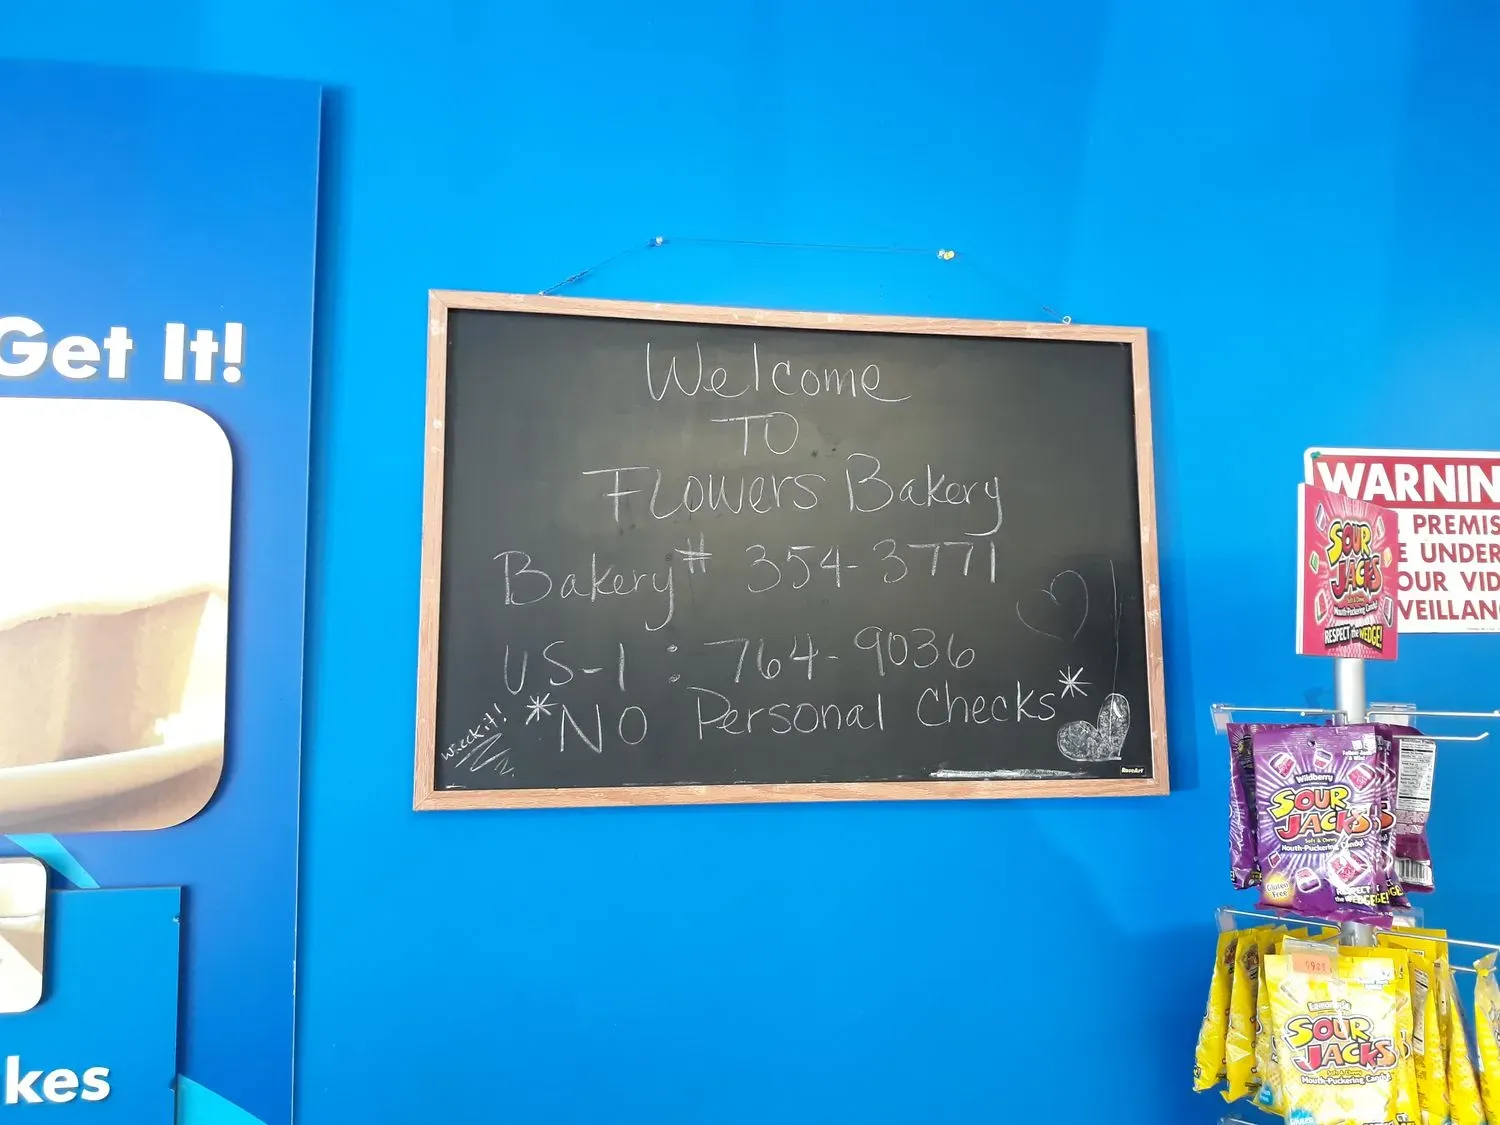 Get It!
Welcome
TO
FLOWERS Bakery
Bakery# 354-3771
US-1 : 764-9036
*NO Personal Checks*
RoseArt
kes
WARNIN
PREMIS
E UNDER
OUR VID
VEILLAN
SOUR
JACKS
Soft & Chewy
Mouth-Puckering Candy!
RESPECT the WEDGE!
Wildberry
SOUR
JACKS
Soft & Chewy
Mouth-Puckering Candy!
Gluten
Free
RESPECT
the WEDGE!
Lemonade
SOUR
JACKS
Soft & Chewy
Mouth-Puckering Candy!